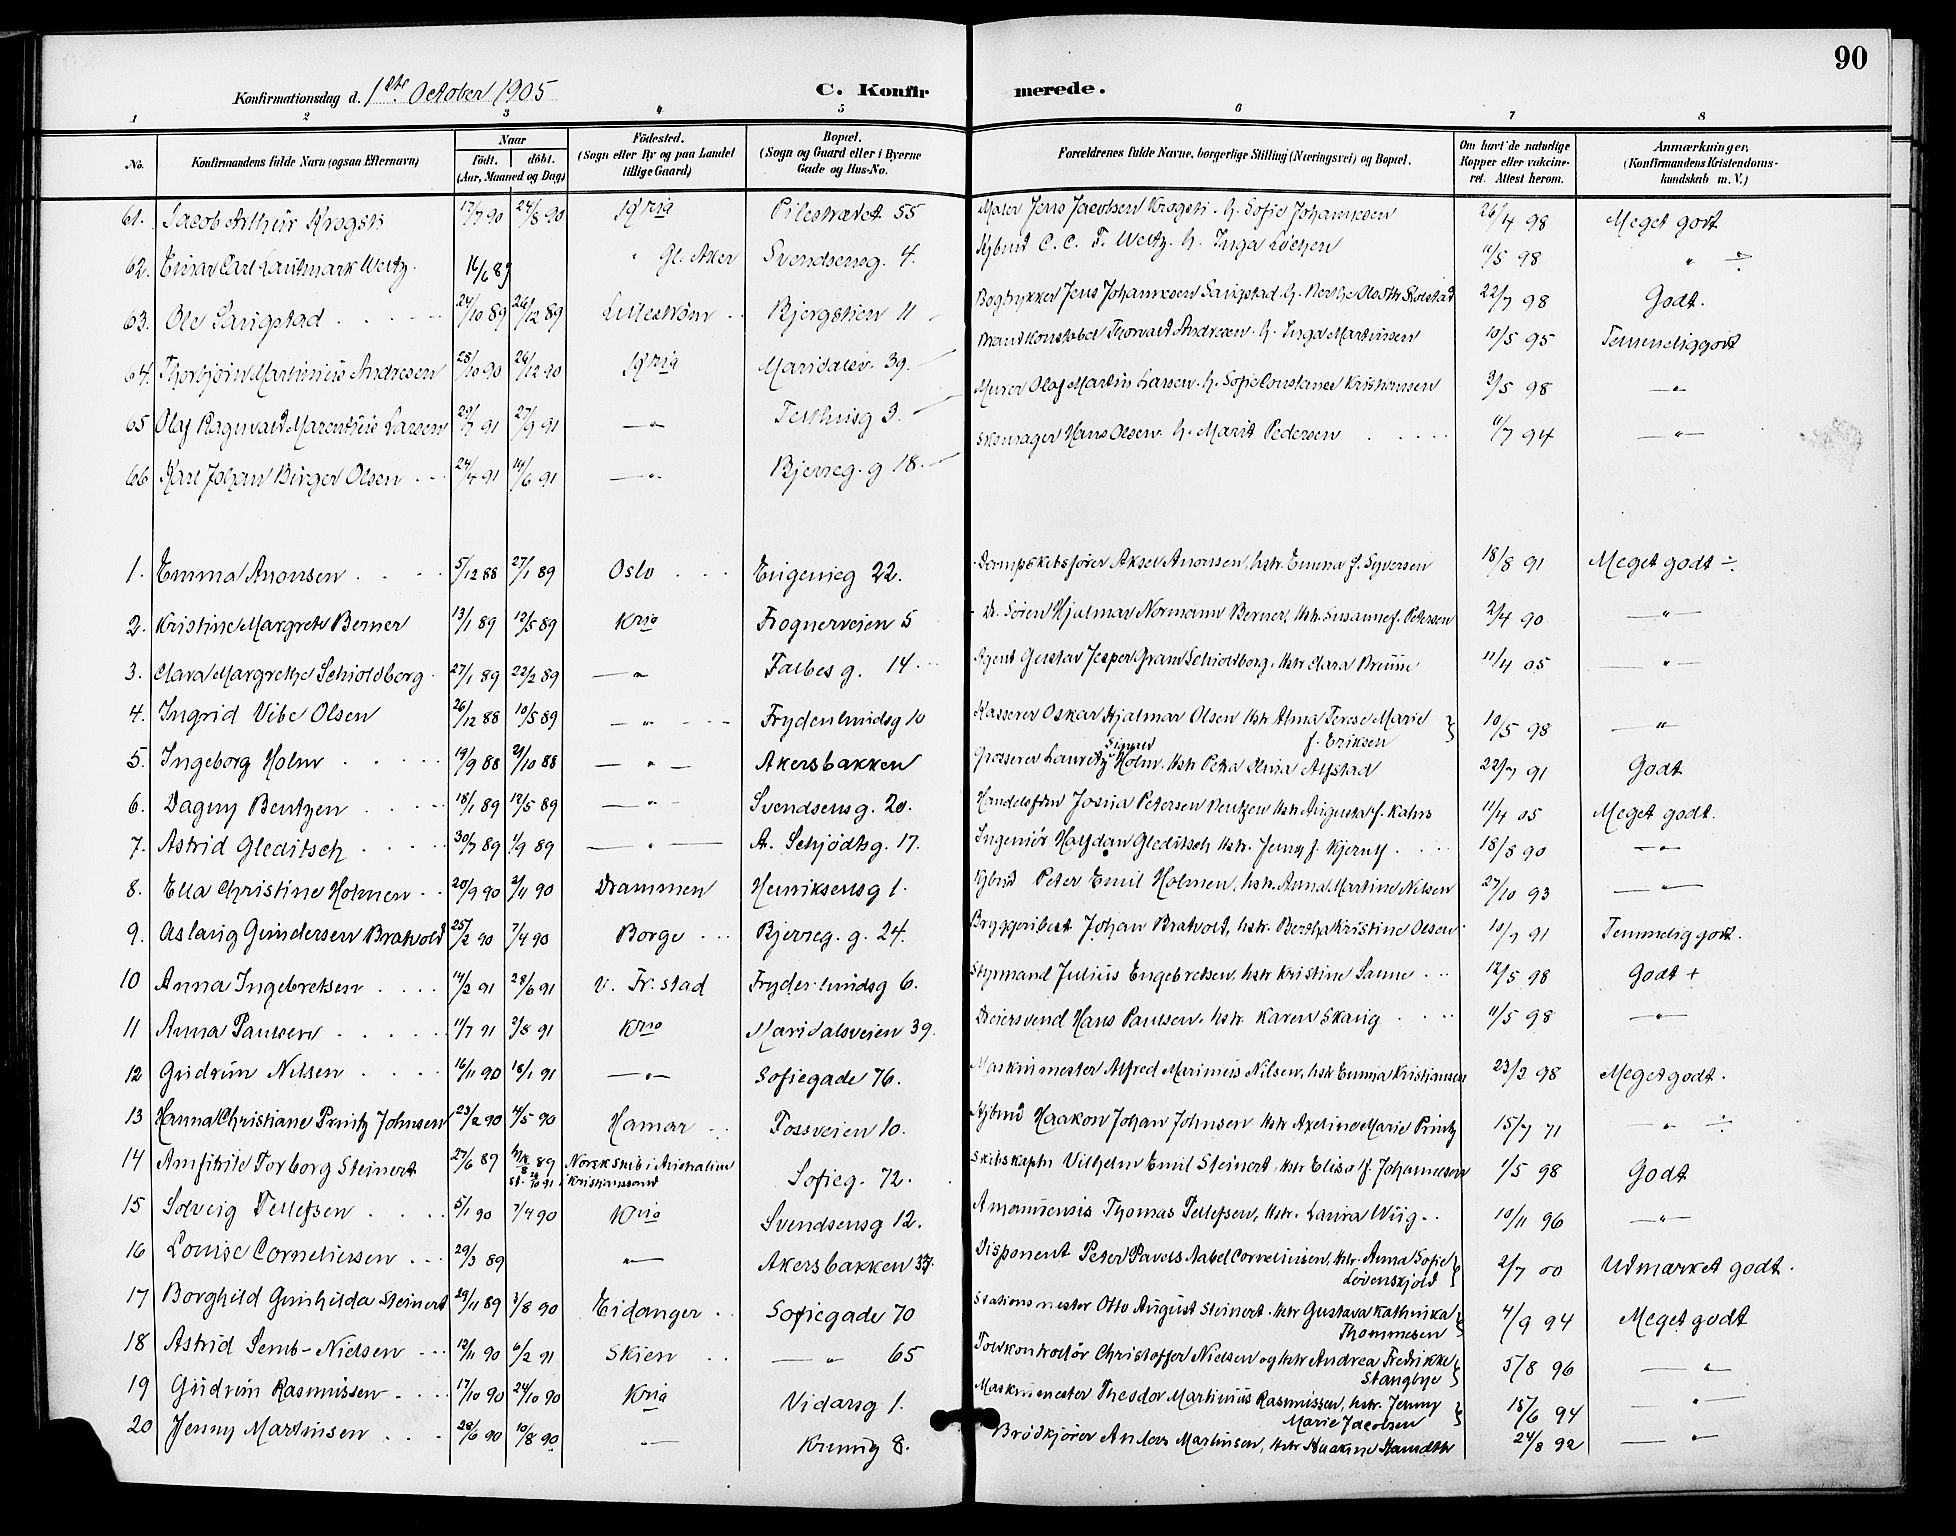 90
Konfirmationsdag d. 1ste October 1905 C. Konfirmerede.
1 2 3 4 5 6 7 8
No. Konfirmandens fulde Navn (ogsaa Efternavn) Naar födt. döbt. (Aar, Maaned og Dag) Födested. (Sogn eller By og paa Landet tillige Gaard) Bopæl. (Sogn og Gaard eller i Byerne Gade og Hus-No. Forældrenes fulde Navne, borgerlige Stilling (Næringsvei) og Bopæl. Om havt de naturlige Kopper eller vakcineret. Attest herom. Anmærkninger. (Konfirmandens Kristendomskundskab m. V.)
61. Jacob Arthur Krogsti 17/7 90 24/8 90 Kria Pilestrædet 55 Maler Jens Jacobsen Krogsti. h. Sofie Johannesen 26/4 98 Meget godt
62. Einar Carl Lautmark Weltz. 16/6 89 " Gl. Aker Svendsensg. 4. Kjbmd C. C. F. Weltz. h. Inga Lötzen 11/5 98 " ÷
63. Ole Saugstad 24/10 89 26/12 89 Lilleström Bjergstien 11 Bogtrykker Jens Johannesen Saugstad. h. Berthe Olsdtr Kolstad 22/7 98 Godt.
64. Thorbjörn Martinius Andresen 28/10 90 26/12 90 Kria Maridalsv. 39. Brandkonstabel Thorvald Andresen. h. Inga Martinsen 10/5 95 Temmelig godt
65 Olaf Ragnvald Marentius Larsen 29/7 91 27/9 91 — " — Testhusg 3. Murer Olaf Martin Larsen. h. Sofie Constance Kristiansen 3/5 98 — " —
66 Karl Johan Birger Olsen 24/4 91 14/6 91 — " — Bjerreg. g 18. Skomager Hans Olsen. h. Marit Pedersen 11/7 94 — " —
1. Emma Anonsen 5/12 88 27/1 89 Oslo Eugenieg 22. Dampskibsförer Aksel Anonsen, hstr. Emma f. Syversen 18/8 91 Meget godt ÷
2. Kristine Margrete Berner 13/1 89 12/5 89 Kria Frognerveien 5 Dr. Sören Hjalmar Normann Berner, hstr. Susanne f. Petersen 2/4 90 — " —
3. Clara Margrethe Schioldborg 27/1 89 22/2 89 — " — Falbes g. 14. Agent Gustav Jesper Gram Schioldborg, hstr Clara Bruun 11/4 05 — " —
4. Ingrid Vibe Olsen 26/12 88 10/5 89 — " — Frydenlundsg 10 Kasserer Oskar Hjalmar Olsen hstr Alma Terese Marie f. Eriksen 10/5 98 — " —
5. Ingeborg Holm 19/9 88 21/10 88 — " — Akersbakken Grosserer Lauritz Sigurd Holm, hstr Petra Olivia Alfstad 22/7 91 Godt
6. Dagny Bentzen 18/1 89 12/5 89 — " — Svendsensg. 20. Handelsfdm Josua Petersen Bentzen hstr Augusta f. Kahrs 11/4 05 Meget godt.
7. Astrid Gleditsch 30/7 89 1/9 89 — " — A. Schjödtsg. 17. Ingeniör Halfdan Gleditsch hstr. Jenny f. Kjerulf 18/8 90 — " —
8. Ella Christine Holmen 20/9 90 2/11 90 Drammen Henriksensg 1. Kjbmd Peter Emil Holmen, hstr. Anna Martine Nilsen 27/10 93 — " —
9. Aslaug Gundersen Bratvold 25/2 90 7/4 90 Borge Bjerreg. g. 24. Bryggeribest Johan Bratvold, hstr. Bertha Kristine Olsen 10/9 91 Temmelig godt.
10 Anna Ingebretsen 14/2 91 28/6 91 v. Fr.stad Frydenlundsg 6. Styrmand Julius Engebretsen, hstr Kristine Sanne 12/5 98 Godt +
11 Anna Paulsen 11/7 91 2/8 91 Kria Maridalsveien 39. Dreiersvend Hans Paulsen. hstr. Karen Skaug 11/5 98 — " —
12 Gudrun Nilsen 16/11 90 18/1 91 — " — Sofiegade 76. Maskinmester Alfred Marinius Nilsen, hstr Emma Kristiansen 23/3 98 Meget godt.
13 Hanna Christiane Printz Johnsen 23/2 90 4/5 90 Hamar Fossveien 10. Kjbmd Haakon Johan Johnsen hstr Axeline Marie Printz 15/7 71 — " — ÷
14 Amfitrite Torborg Steinert 27/6 89 89 Norsk skib i Australien Kristianssand Sofieg. 72. Skibskaptn Vilhelm Emil Steinert, hstr Elisa f. Johannesen 1/5 98 Godt
15 Solveig Tellefsen 5/1 90 7/4 90 Kria Svendsensg 12. Amanuensis Thomas Tellefsen, hstr. Laura Wiig 10/11 96 — " —
16 Louise Corneliussen 29/3 89 — " — Akersbakken 33. Disponent Peter Pavels Aabel Corneliussen, hstr. Anna Sofie Lövenskjold 2/7 00 Udmærket godt.
17 Borghild Gunhilda Steinert 29/11 89 3/8 90 Eidanger Sofiegade 70 Stationsmester Otto August Steinert. hstr Gustava Kathinka Thommesen 4/9 94 Meget godt
18 Astrid Semb-Nielsen 12/11 90 6/2 91 Skien — " — 65 Toldkontrollör Christoffer Nielsen og hstr Andrea Fredrikke Stangbye 5/8 96 — " —
19 Gudrun Rasmussen 17/10 90 24/10 90 Kria Vidarsg 1. Maskinmester Theodor Martinius Rasmussen, hstr. Jenny Marie Jacobsen 15/6 94 — " —
20 Jenny Martinsen 28/6 90 10/8 90 — " — 8. Brödkjörer Anders Martinsen, hstr 24/8 92 — " —